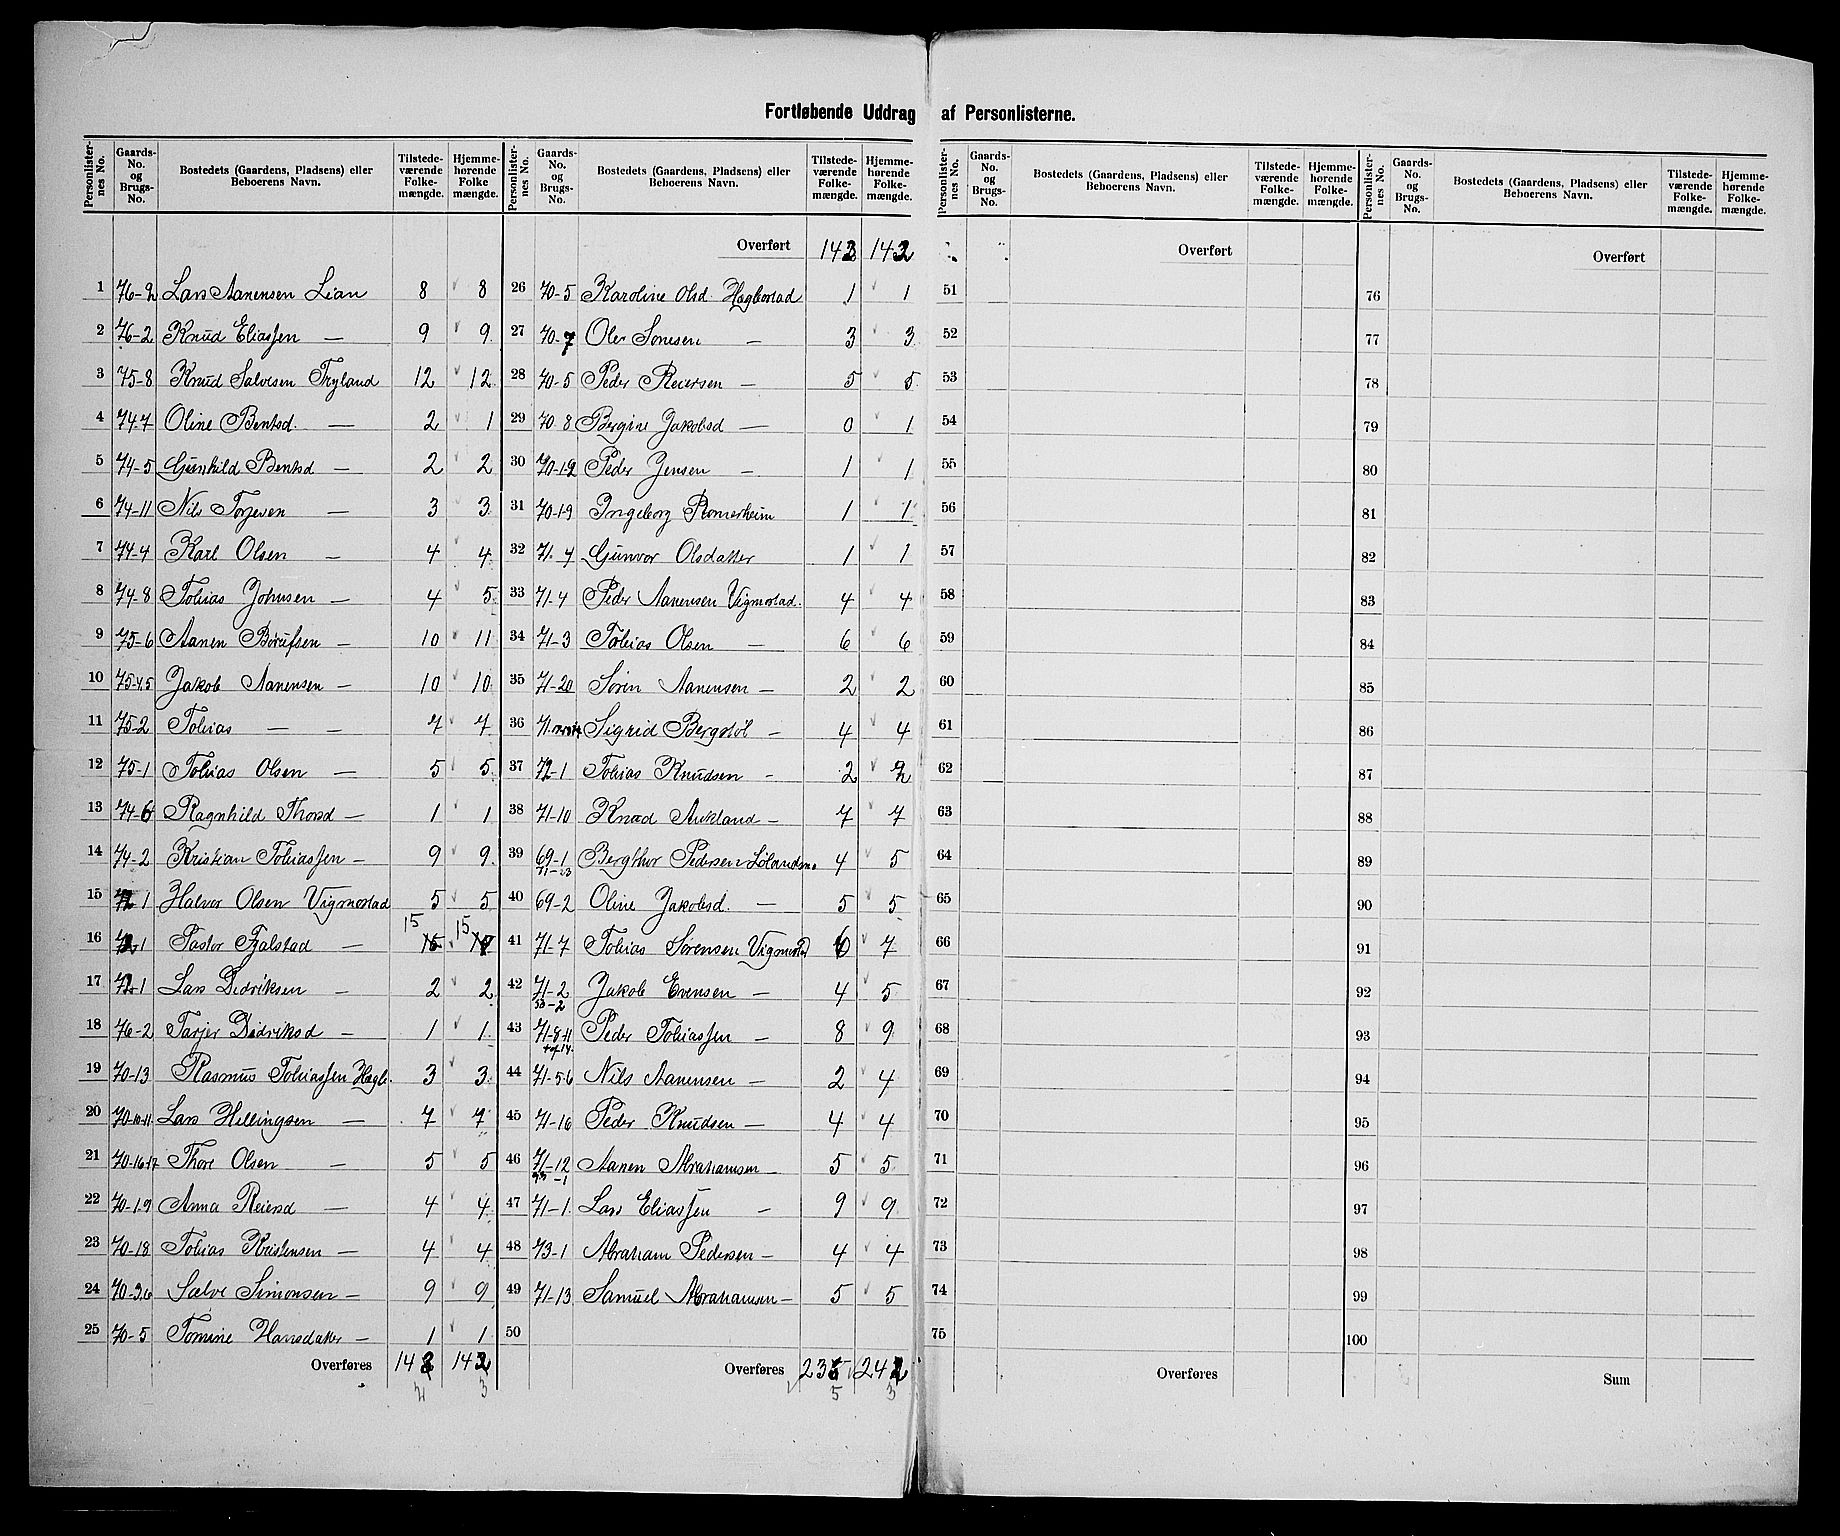 Fortløbende Uddrag af Personlisterne.
Personlisternes No. | Gaards-No. og Brugs-No. | Bostedets (Gaardens, Pladsens) eller Beboerens Navn. | Tilstedeværende Folkemængde. | Hjemmehørende Folkemængde.
1 76-2 Lars Aanensen Lian 8 8
2 76-2 Knud Eliassen — 9 9
3 75-8 Knud Salvesen Tryland 12 12
4 74-7 Oline Bentsd. — 2 1
5 74-5 Gunhild Bentsd — 2 2
6 74-11 Nils Torjesen — 3 3
7 74-4 Karl Olsen — 4 4
8 74-8 Tobias Johnsen — 4 5
9 75-6 Aanen Børufsen — 10 11
10 75-4.5 Jakob Aanensen — 10 10
11 75-2 Tobias — — 7 7
12 75-1 Tobias Olsen — 5 5
13 74-6 Ragnhild Thorsd — 1 1
14 74-2 Kristian Tobiassen — 9 9
15 72-1 Halvor Olsen Vigmostad 5 5
16 72-1 Pastor Fjalstad — 15 15
17 72-1 Lars Didriksen — 2 2
18 76-2 Tarjer Didriksd — 1 1
19 70-13 Rasmus Tobiassen Hægb. 3 3
20 70-10-11 Lars Hellingsen — 7 7
21 70-16-17 Thore Olsen — 5 5
22 70-1.9 Anna Reiersd — 4 4
23 70-18 Tobias Kristensen — 4 4
24 70-3.6 Salve Simonsen — 9 9
25 70-5 Tomine Hansdatter — 1 1
Overføres 142 143
Overført 142 143
26 70-5 Karoline Olsd. Hægbostad 1 1
27 70-7 Ole Sønesen — 3 3
28 70-5 Peder Reiersen — 5 5
29 70-8 Bergine Jakobsd — 0 1
30 70-12 Peder Jensen — 1 1
31 70-19 Ingeborg Romerheim 1 1
32 71-4 Gunvor Olsdatter 1 1
33 71-4 Peder Aanensen Vigmostad. 4 4
34 71-3 Tobias Olsen — 6 6
35 71-20 Søren Aanensen — 2 2
36 71 Sigrid Bergstøl — 4 4
37 72-1 Tobias Knudsen — 2 2
38 71-10 Knud Aukland — 7 7
39 69-1 71-23 Bergthor Pedersen Lølandsmo 4 5
40 69-2 Oline Jakobsd. — 5 5
41 71-7 Tobias Sørensen Vigmostad 6 7
42 71-2 53-2 Jakob Evensen — 4 5
43 71-8-11 + af 14. Peder Tobiassen — 8 9
44 71-5.6 Nils Aanensen — 2 4
45 71-16 Peder Knudsen — 4 4
46 71-12 53-1 Aanen Abrahamsen — 5 5
47 71-1 Lars Eliassen — 9 9
48 73-1 Abraham Pedersen — 4 4
49 71-13 Samuel Abrahamsen — 5 5
50
Overføres 235 243
Personlisternes No. | Gaards-No. og Brugs-No. | Bostedets (Gaardens, Pladsens) eller Beboerens Navn. | Tilstedeværende Folkemængde. | Hjemmehørende Folkemængde.
Overført
51
52
53
54
55
56
57
58
59
60
61
62
63
64
65
66
67
68
69
70
71
72
73
74
75
Overføres
Overført
76
77
78
79
80
81
82
83
84
85
86
87
88
89
90
91
92
93
94
95
96
97
98
99
100
Sum